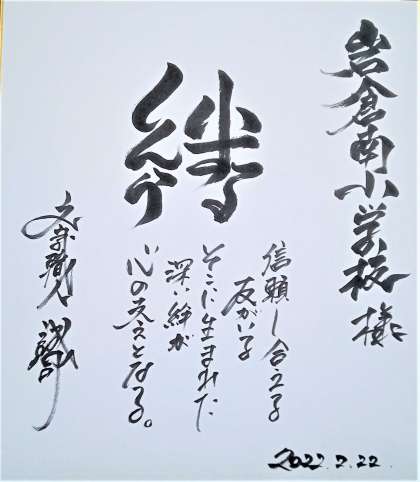 岩倉南小学校 様
絆
信頼し合える
友がいる
そこに生まれた
深い絆が
心の支えとなる。
文字職人
2022.2.22.